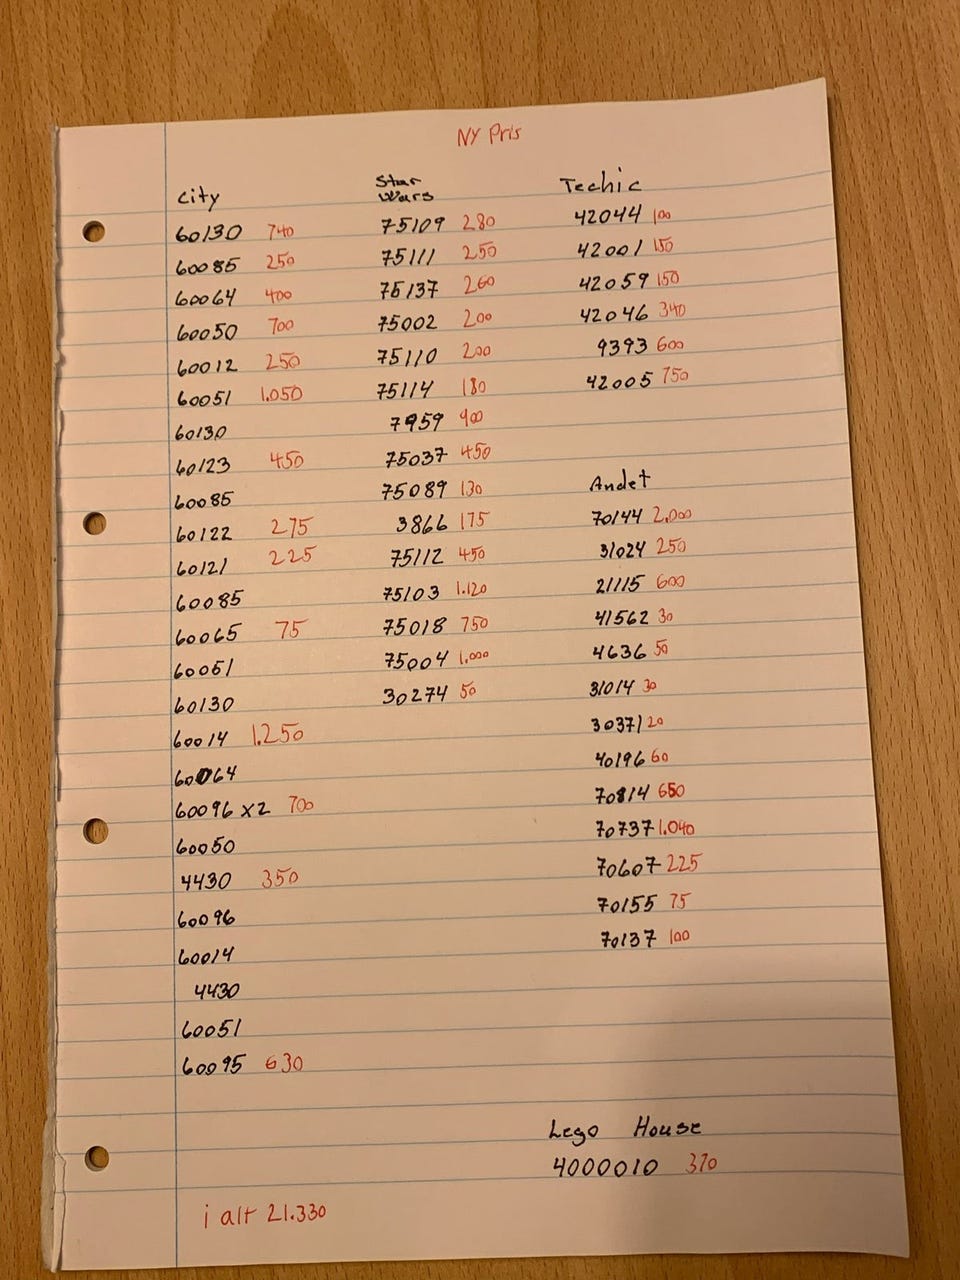 NY Pris
City
60130 740
60085 250
60064 400
60050 700
60012 250
60051 1.050
60130
60123 450
60085
60122 275
60121 225
60085
60065 75
60051
60130
60014 1.250
60064
60096 x2 700
60050
4430 350
60096
60014
4430
60051
60095 630
Star
Wars
75109 280
75111 250
75137 260
75002 200
75110 200
75114 180
7959 900
75037 450
75089 130
3866 175
75112 450
75103 1.120
75018 750
75004 1.000
30274 50
Techic
42044 100
42001 150
42059 150
42046 340
9393 600
42005 750
Andet
70144 2.000
31024 250
21115 600
41562 30
4636 50
31014 30
30371 20
40196 60
70814 650
70737 1.040
70607 225
70155 75
70137 100
Lego House
4000010 370
i alt 21.330